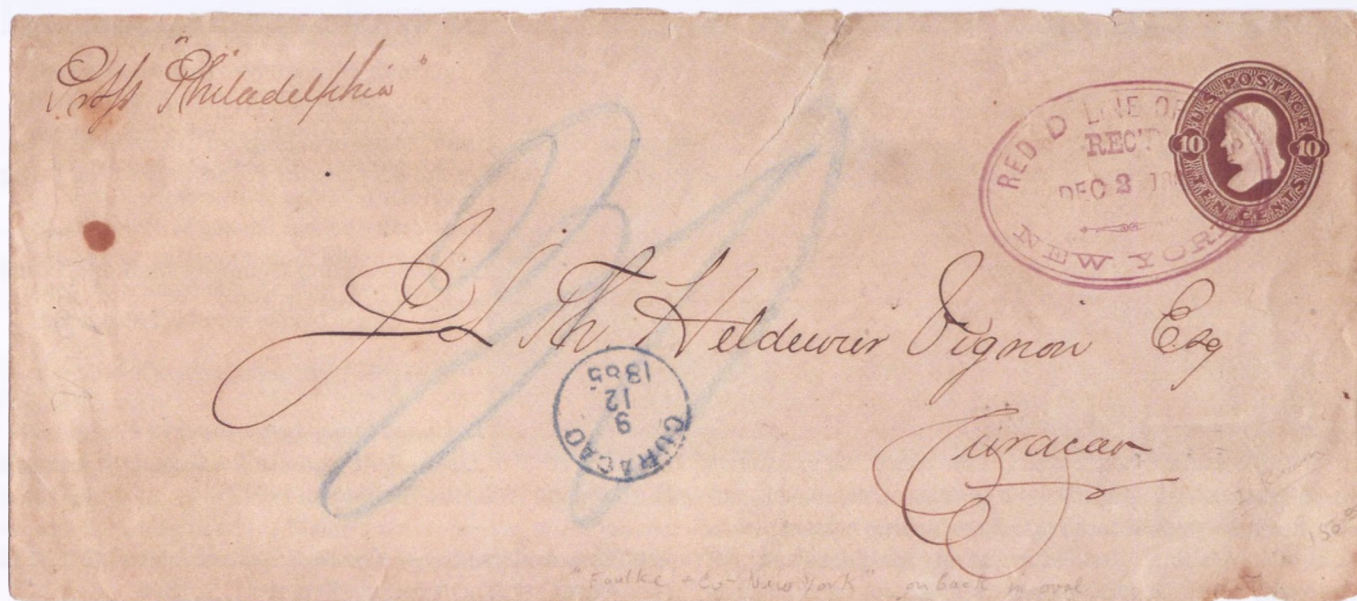 "Philadelphia"
RED D LINE OF
REC'T
DEC 2
NEW YORK
U.S. POSTAGE
10 10
TEN CENTS
J L Th. Heldewier Vignon Esq
CURAÇAO
9
12
1885
Curacao
"Foulke + Co - New York" on back in oval
150.00